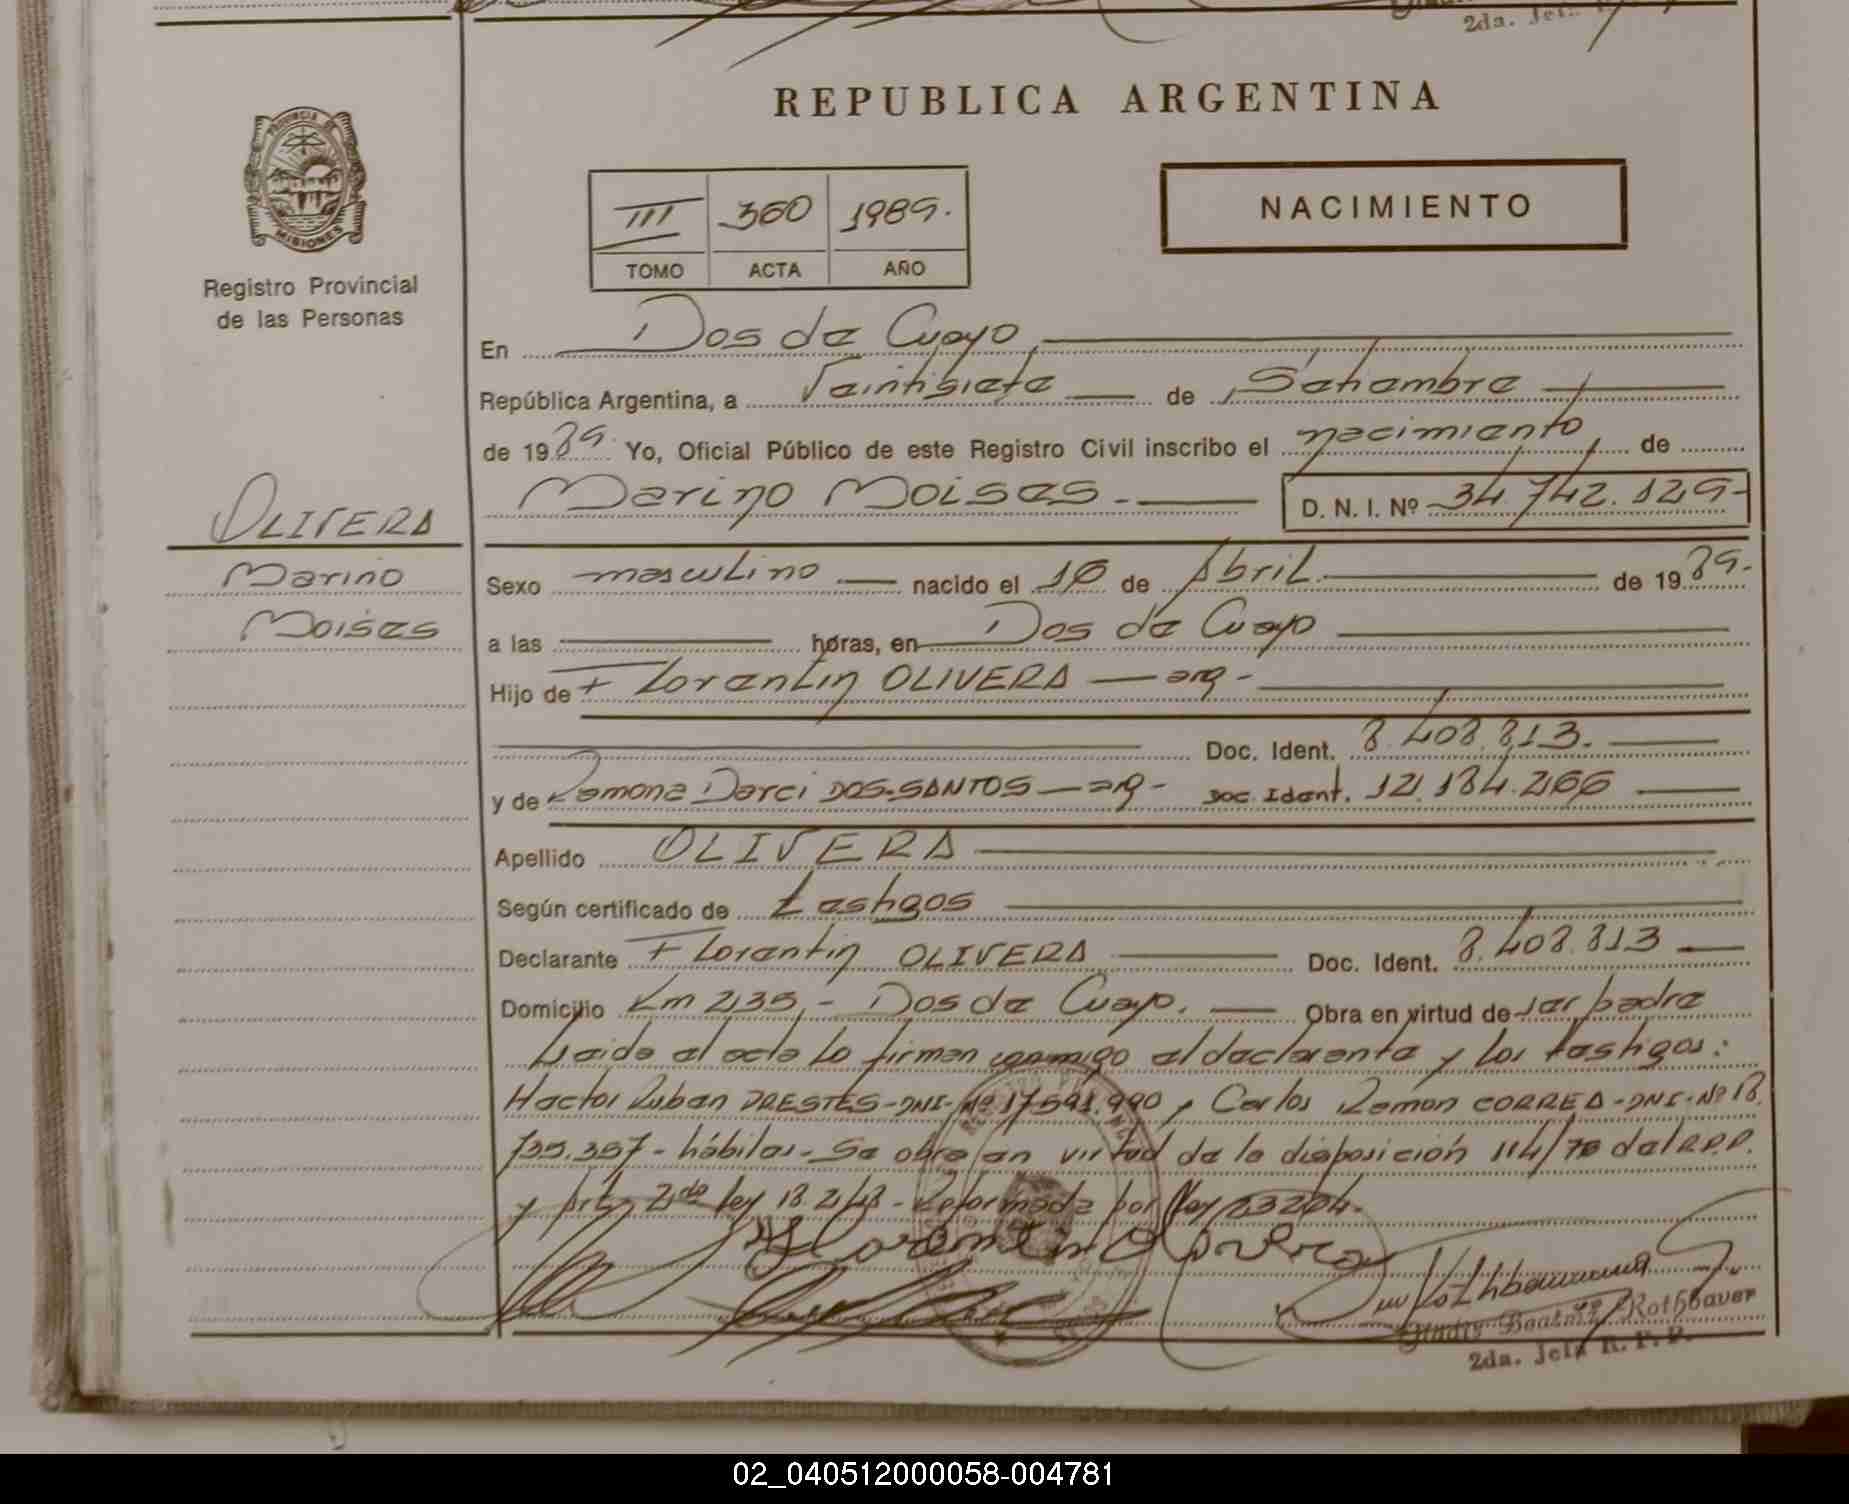 2da. Jefa
REPUBLICA ARGENTINA
PROVINCIA DE
MISIONES
Registro Provincial
de las Personas
III 360 1989.
TOMO ACTA AÑO
NACIMIENTO
En Dos de Mayo,
República Argentina, a Veintisiete de Setiembre
de 1989. Yo, Oficial Público de este Registro Civil inscribo el nacimiento, de
Marino Moises. D. N. I. Nº 34.742.129-
OLIVERA
Marino
Moises
Sexo masculino nacido el 16 de Abril. de 1989.
a las horas, en Dos de Mayo
Hijo de Florentin OLIVERA — arg -
Doc. Ident. 8.408.813.
y de Ramona Darci DOS-SANTOS — arg - Doc. Ident. 12.184.266
Apellido OLIVERA
Según certificado de testigos
Declarante Florentin OLIVERA Doc. Ident. 8.408.813
Domicilio Km 235, - Dos de Mayo. Obra en virtud de ser padre
Leida el acta la firman conmigo el declarante y los testigos:
Hector Ruben PRESTES-DNI-Nº 17.591.990, Carlos Ramon CORREA-DNI-Nº 18.
735.357 - hábiles - Se obra en virtud de la disposición 114/78 del R.P.P.
y Art. 2do ley 18.248 - Reformada por ley 23264.
Florentin Olivera
Gladis Beatriz Rothbauer
2da. Jefa R. P. P.
02_040512000058-004781